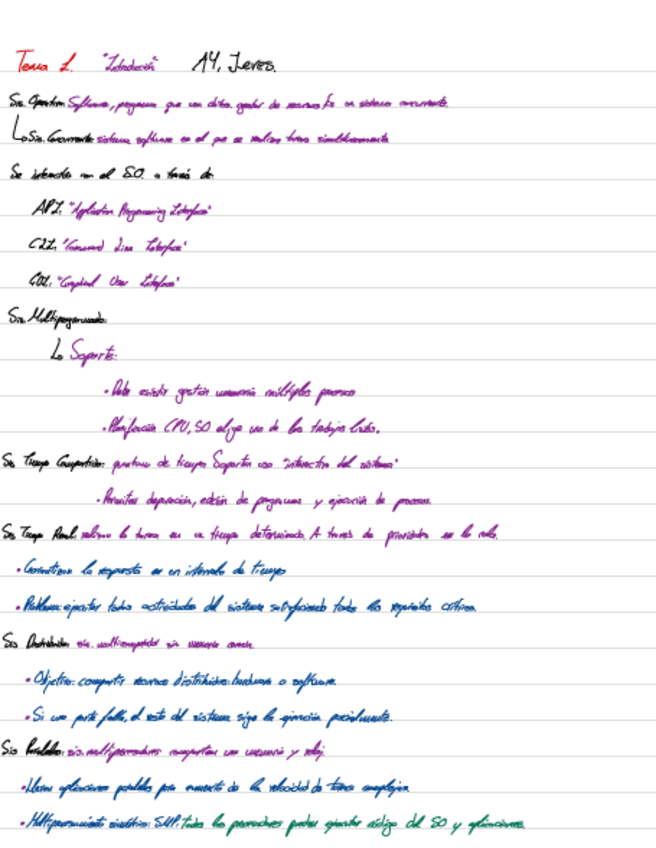 Tema 1. "Introducción" 14, Jeres.
Sis. Operativo: Software, programa que un gestor de recursos en un sistema concurrente.
Sis. Concurrente: sistema software en el que se realizan tareas simultáneamente
Se interactúa con el S.O. a través de:
API: "Application Programming Interface"
CLI: "Command Line Interface"
GUI: "Graphical User Interface"
Sis. Multiprogramado:
Soporte:
• Debe existir gestión memoria múltiples procesos
• Planificación CPU, SO elige uno de los trabajos listos.
Sis Tiempo Compartido: de tiempo. Soportan uso "interactivo del sistema"
• Permiten depuración, edición de programas y ejecución de procesos.
Sis Tiempo Real: realizan la tarea en un tiempo determinado. A través de prioridades en la
• Garantizan la respuesta en un intervalo de tiempo
• Problema: ejecutar todas actividades del sistema satisfaciendo todos los requisitos críticos.
Sis Distribuidos: sis. multicomputador sin memoria común.
• Objetivo: compartir recursos distribuidos: hardware o software.
• Si una parte falla, el resto del sistema sigue la ejecución parcialmente.
Sis Paralelos: sis. multiprocesadores comparten una memoria y reloj.
• aplicaciones paralelas para aumento de la velocidad de tareas complejas.
• Multiprocesamiento simétrico: SMP. Todos los procesadores pueden ejecutar código del SO y aplicaciones.